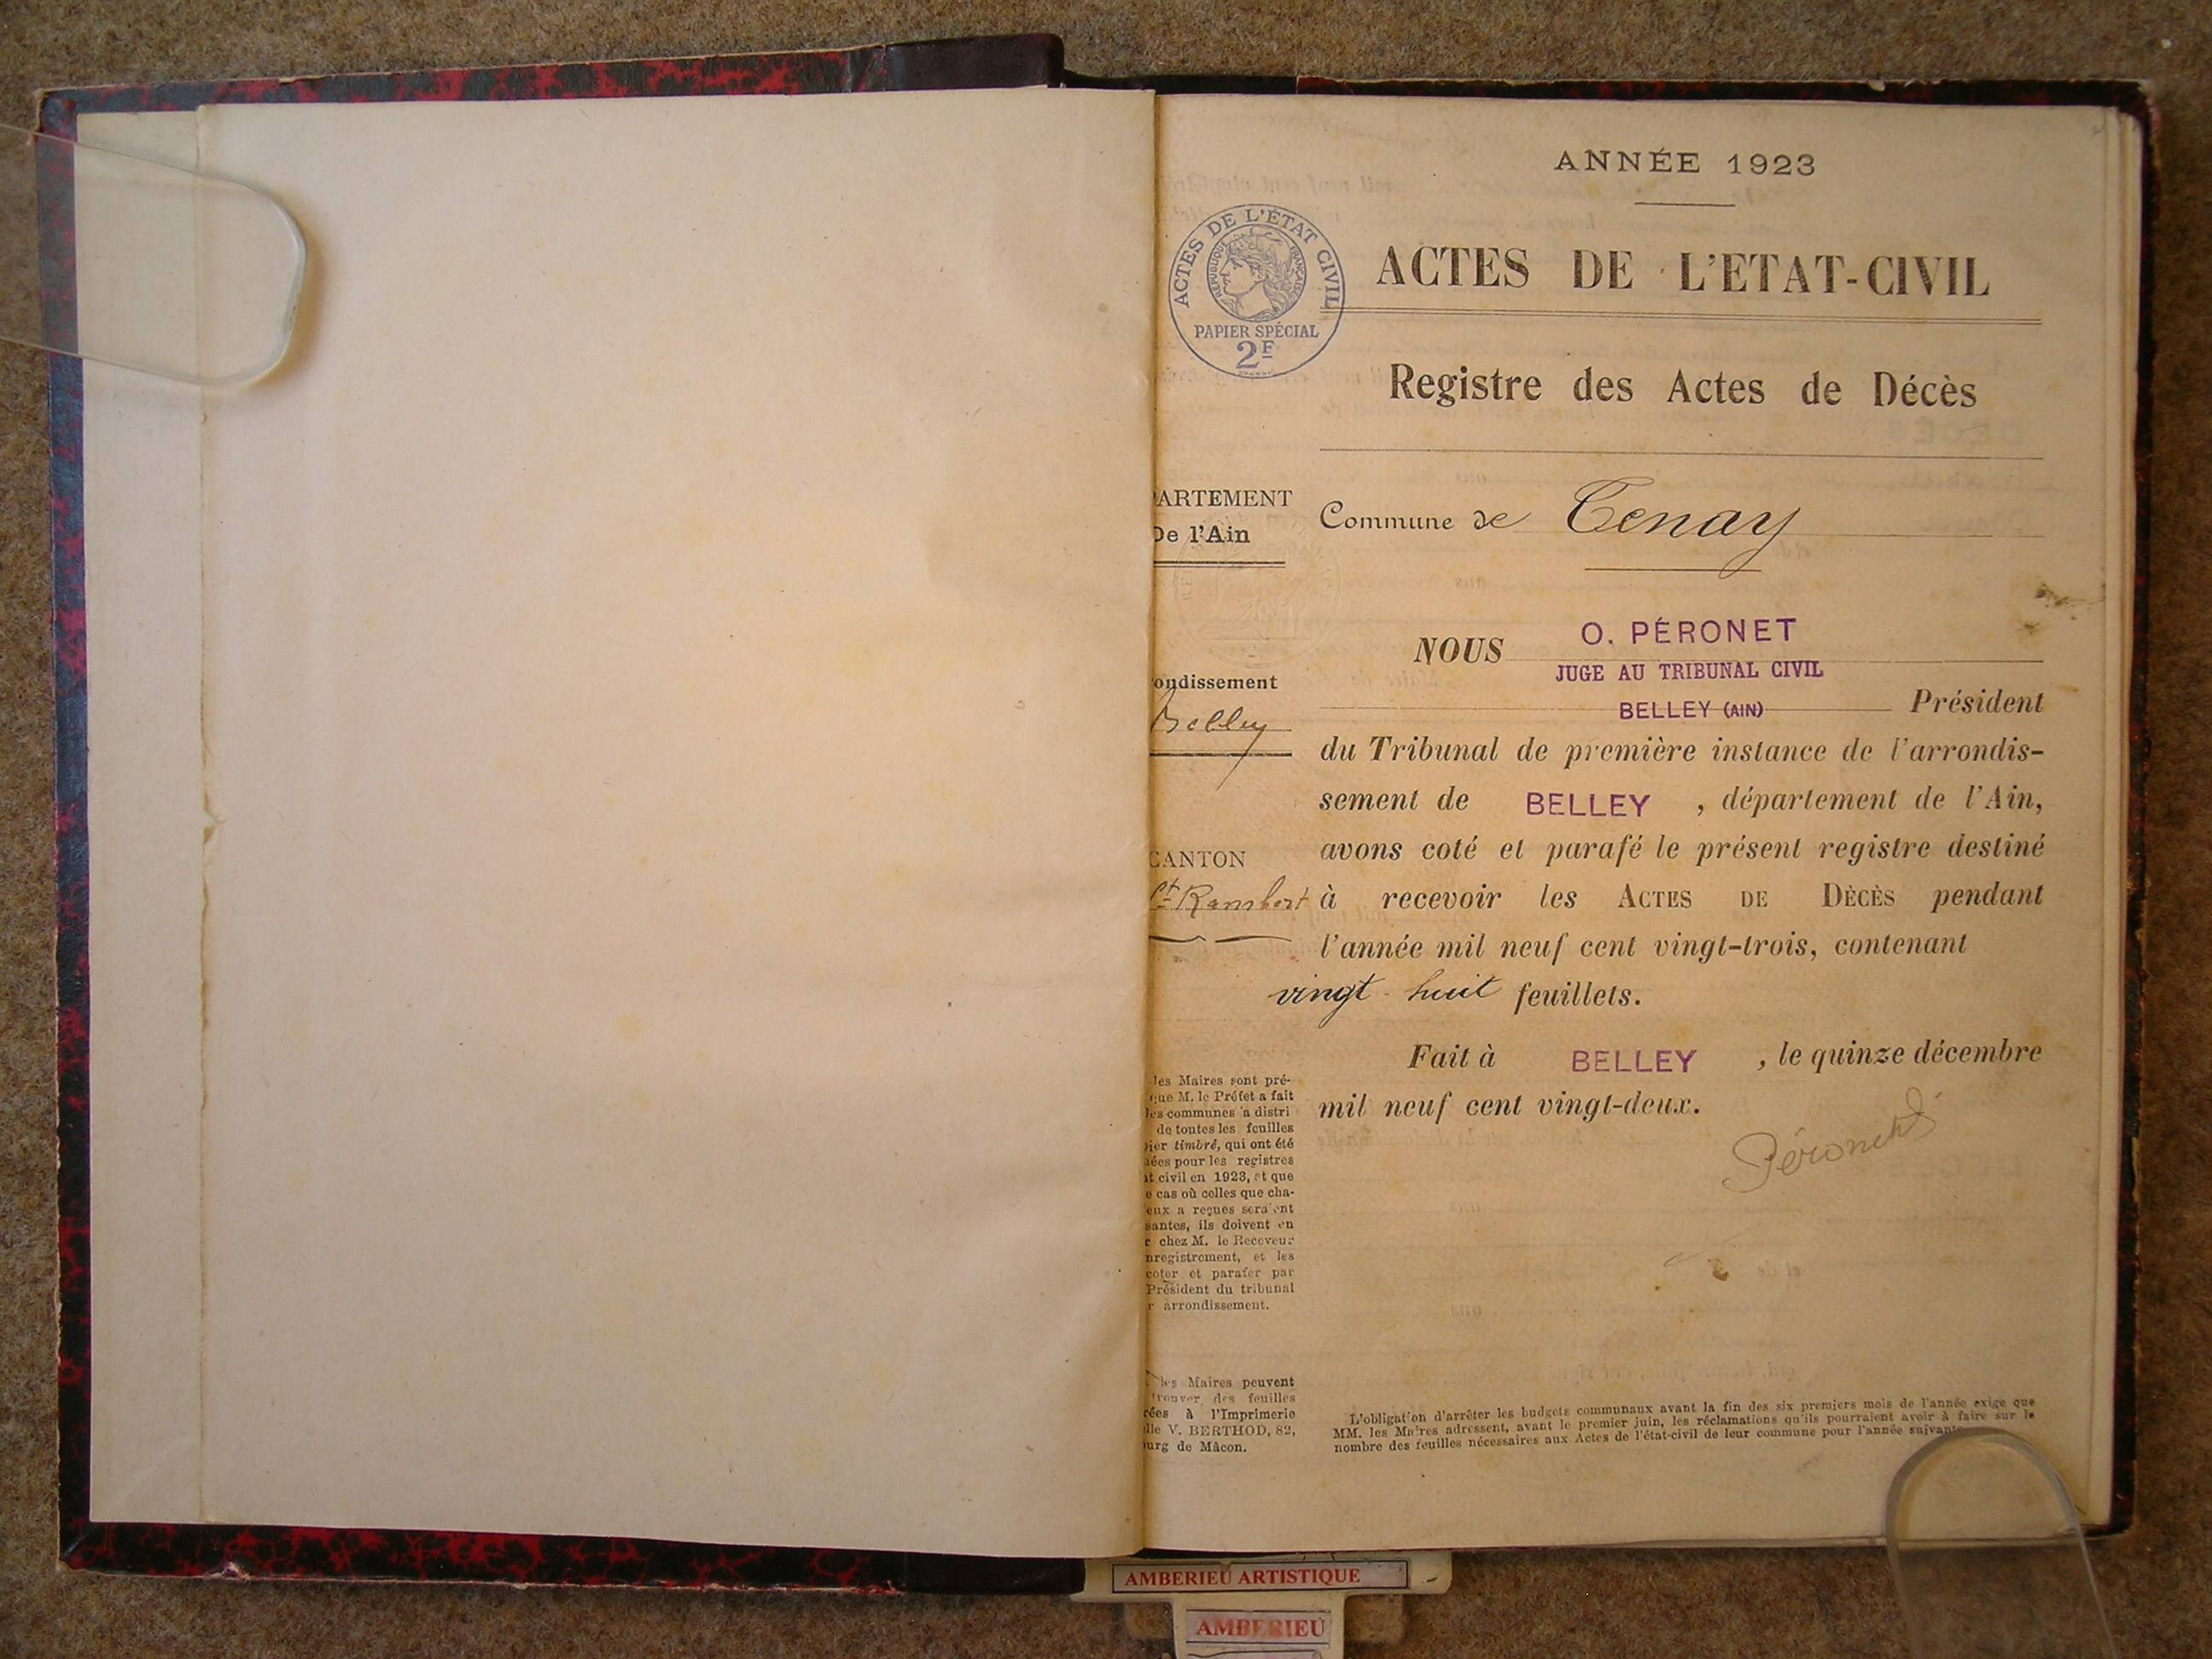 ANNÉE 1923
ACTES DE L'ÉTAT CIVIL
RÉPUBLIQUE FRANÇAISE
PAPIER SPÉCIAL
2F
ACTES DE L'ETAT-CIVIL
Registre des Actes de Décès
ARTEMENT
De l'Ain
Commune de Tenay
NOUS O. PÉRONET
JUGE AU TRIBUNAL CIVIL
BELLEY (AIN) Président
ondissement
Belley
du Tribunal de première instance de l'arrondis-
sement de BELLEY , département de l'Ain,
avons coté et parafé le présent registre destiné
CANTON
St Rambert
à recevoir les ACTES DE DÉCÈS pendant
l'année mil neuf cent vingt-trois, contenant
vingt-huit feuillets.
Fait à BELLEY , le quinze décembre
mil neuf cent vingt-deux.
Péronet
les Maires sont pré-
que M. le Préfet a fait
les communes a distri
de toutes les feuilles
ier timbré, qui ont été
ées pour les registres
at civil en 1923, et que
e cas où celles que cha-
eux a reçues seraient
santes, ils doivent en
r chez M. le Receveur
nregistrement, et les
coter et parafer par
Président du tribunal
r arrondissement.
les Maires peuvent
trouver des feuilles
rées à l'Imprimerie
lle V. BERTHOD, 82,
urg de Mâcon.
L'obligation d'arrêter les budgets communaux avant la fin des six premiers mois de l'année exige que
MM. les Maires adressent, avant le premier juin, les réclamations qu'ils pourraient avoir à faire sur le
nombre des feuilles nécessaires aux Actes de l'état-civil de leur commune pour l'année suivante
AMBERIEU ARTISTIQUE
AMBERIEU